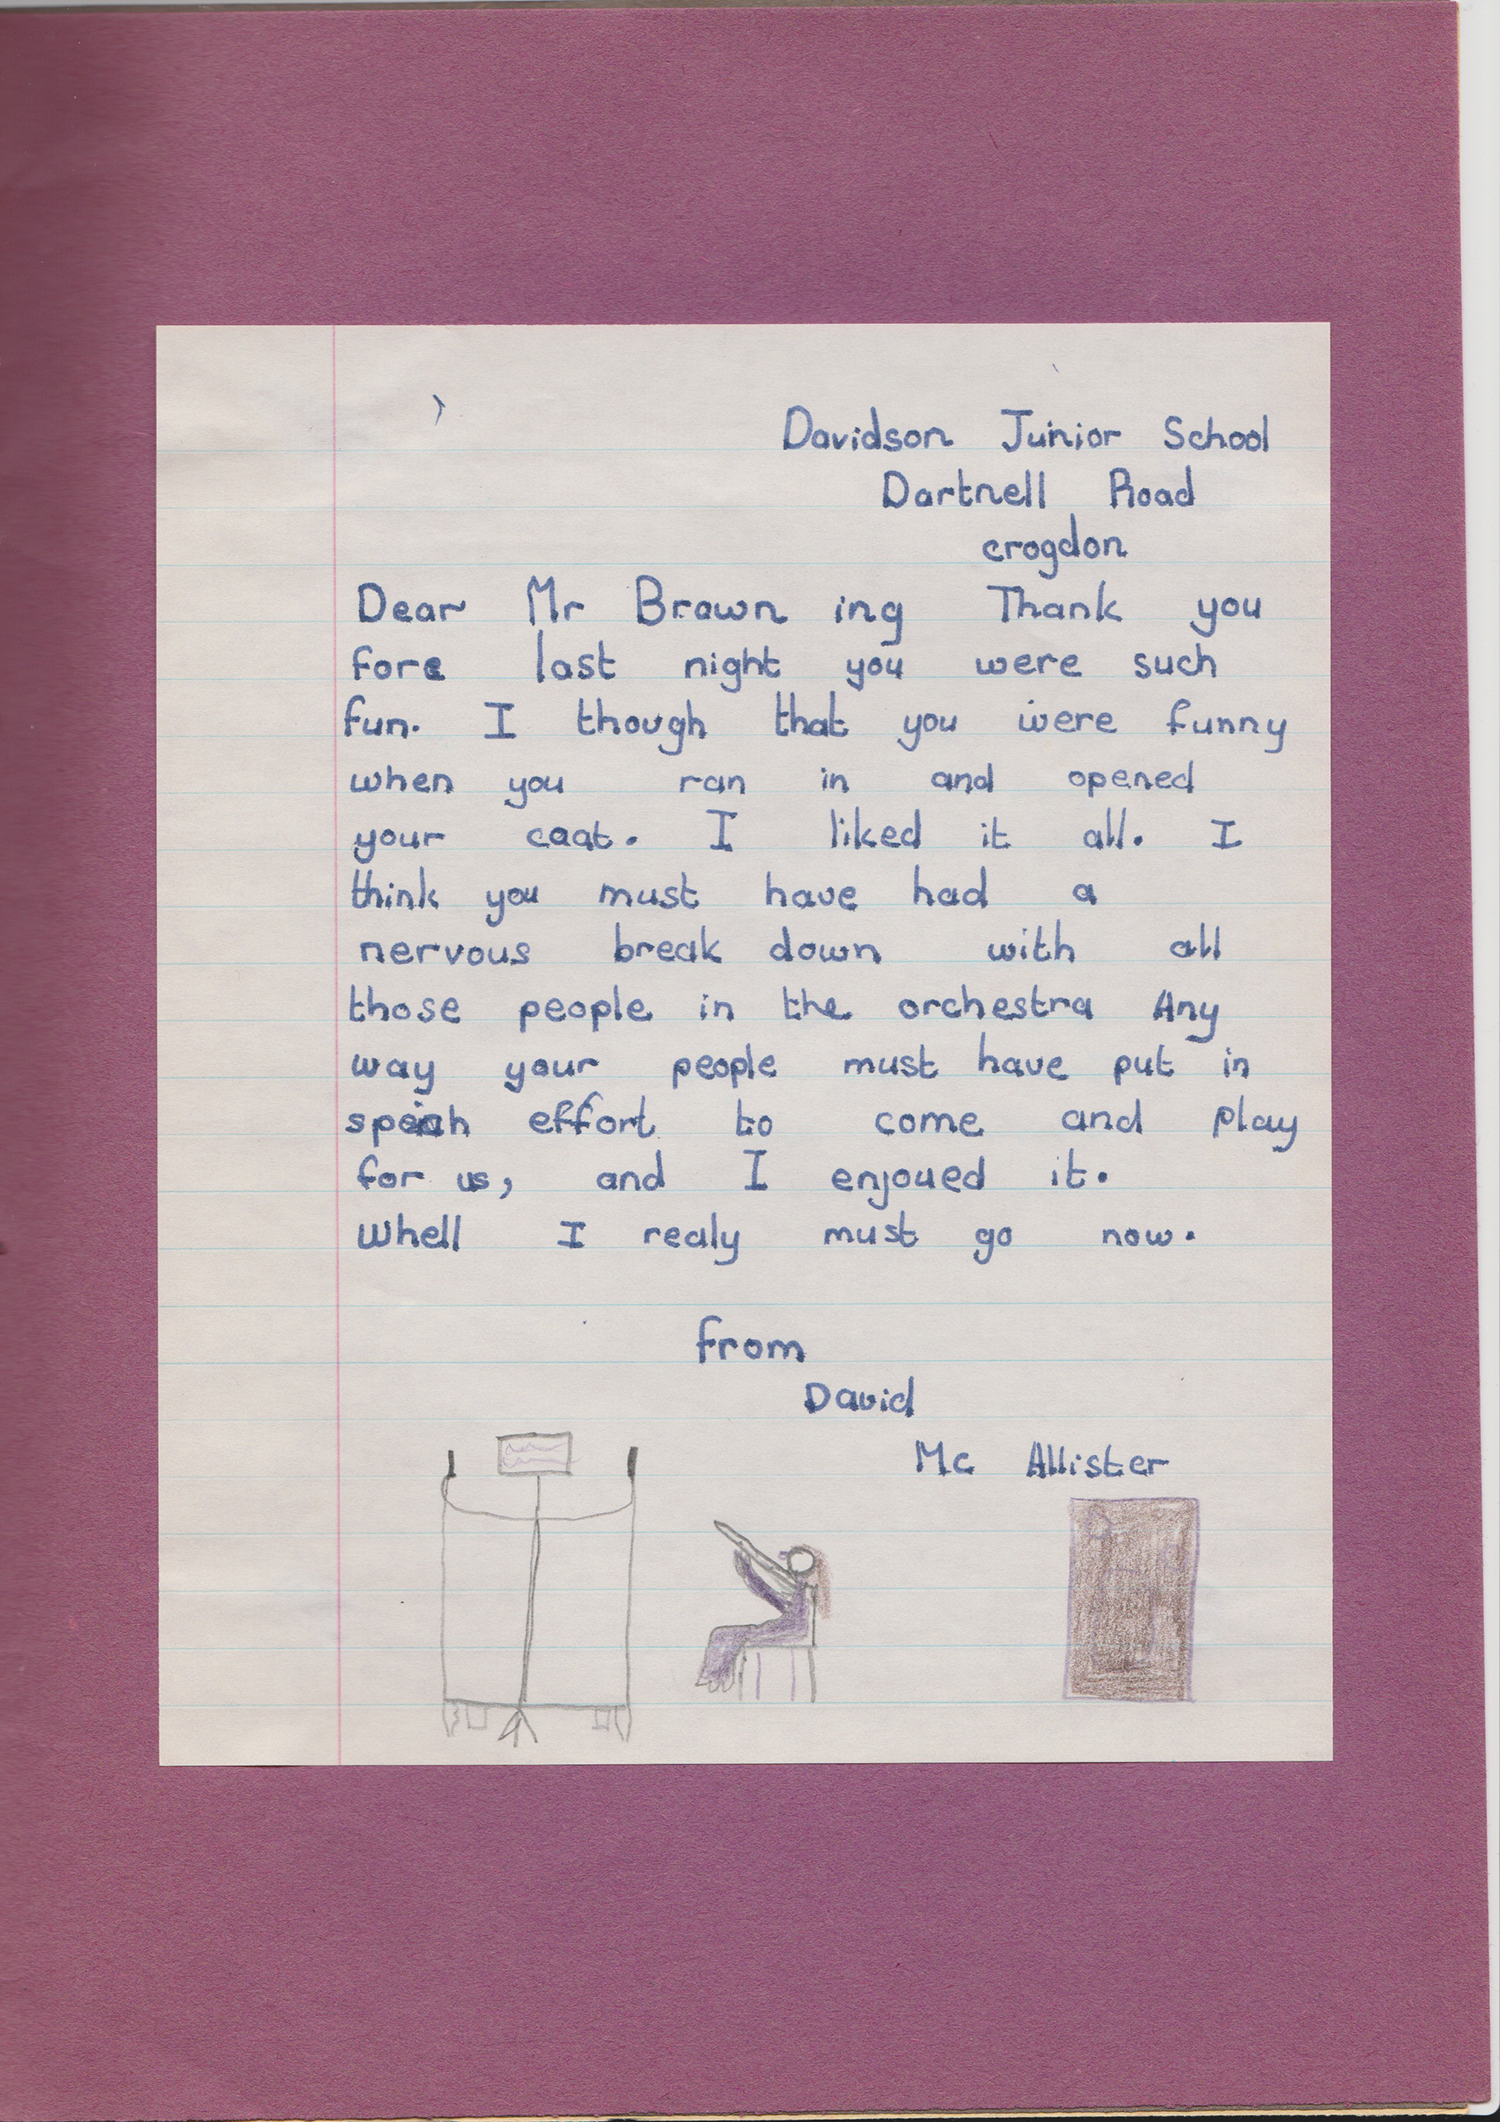 Davidson Junior School
Dartnell Road
crogdon
Dear Mr Brown ing Thank you
fore last night you were such
fun. I though that you were funny
when you ran in and opened
your caat. I liked it all. I
think you must have had a
nervous break down with all
those people in the orchestra Any
way your people must have put in
effort to come and play
for us, and I enjoued it.
Whell I realy must go now.
from
David
Mc Allister